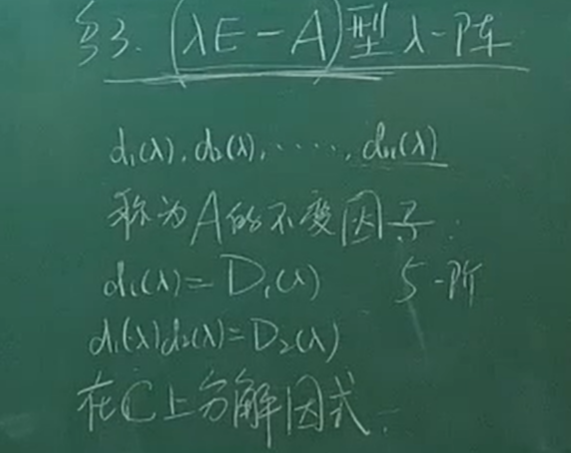 §3. (λE-A)型λ-阵
d₁(λ), d₂(λ), ······, dₙ(λ)
称为A的不变因子.
d₁(λ)=D₁(λ) 5-阶
d₁(λ)d₂(λ)=D₂(λ)
在C上分解因式.